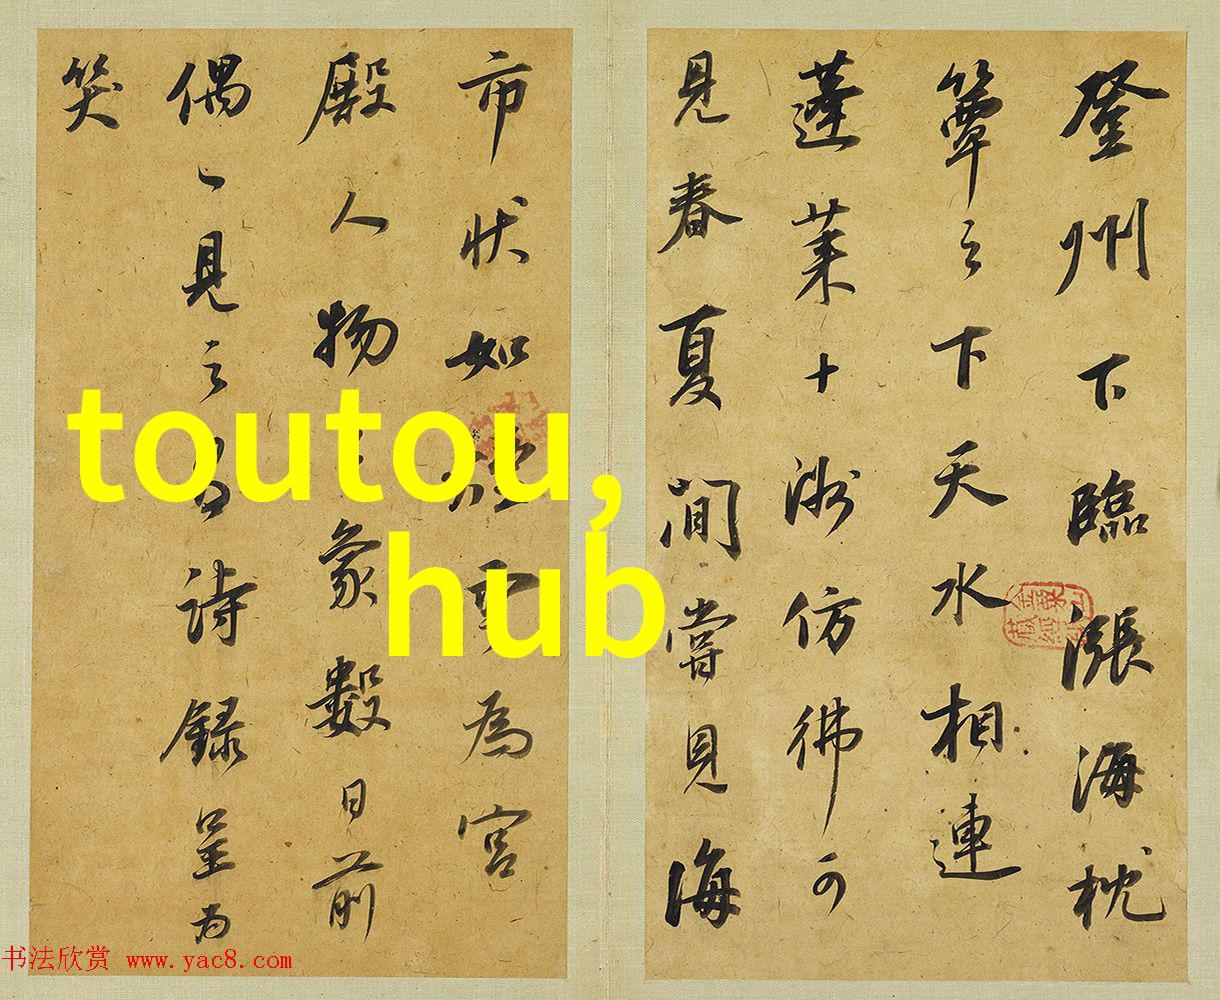 登州下臨漲海枕
簟之下天水相連
蓬萊十洲仿彿可
見春夏間嘗見海
市狀如為宮
殿人物象數日前
偶一見之詩錄呈為
笑
金粟山藏經紙
toutou,
hub
书法欣赏 www.yac8.com